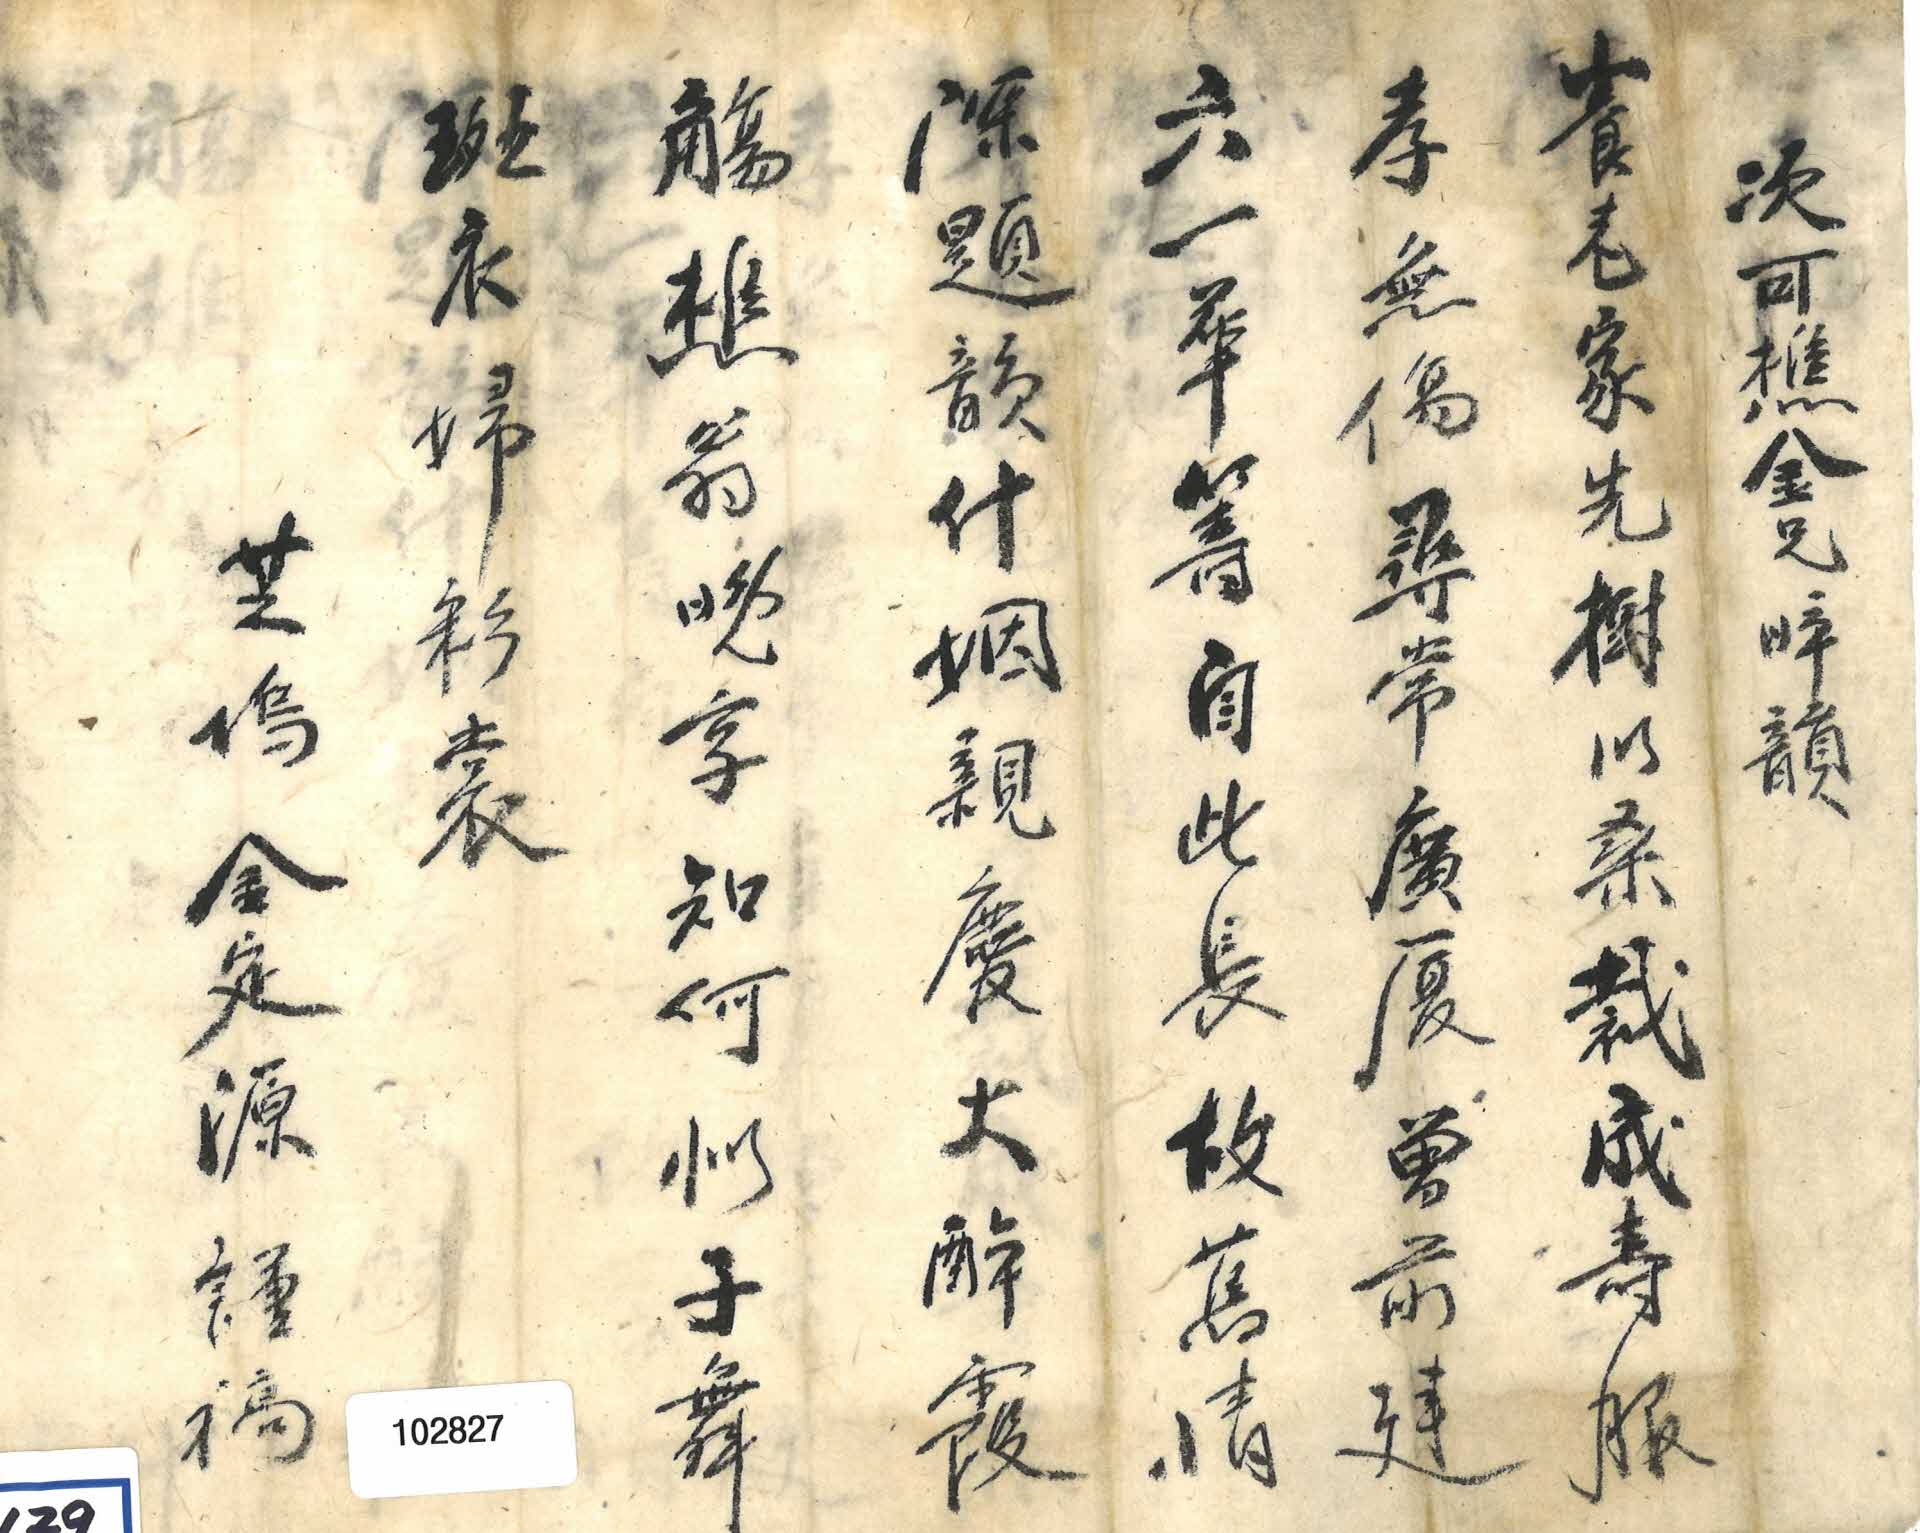 次可樵金兄晬韻
養老家先樹以桑栽成壽服
孝無傷尋常廣厦曾前建
六一華筹自此長故舊情
深題韻什姻親慶大醉霞
觴樵翁晩享知何似子舞
斑衣婦彩裳
芝塢 金定源 謹稿
102827
129